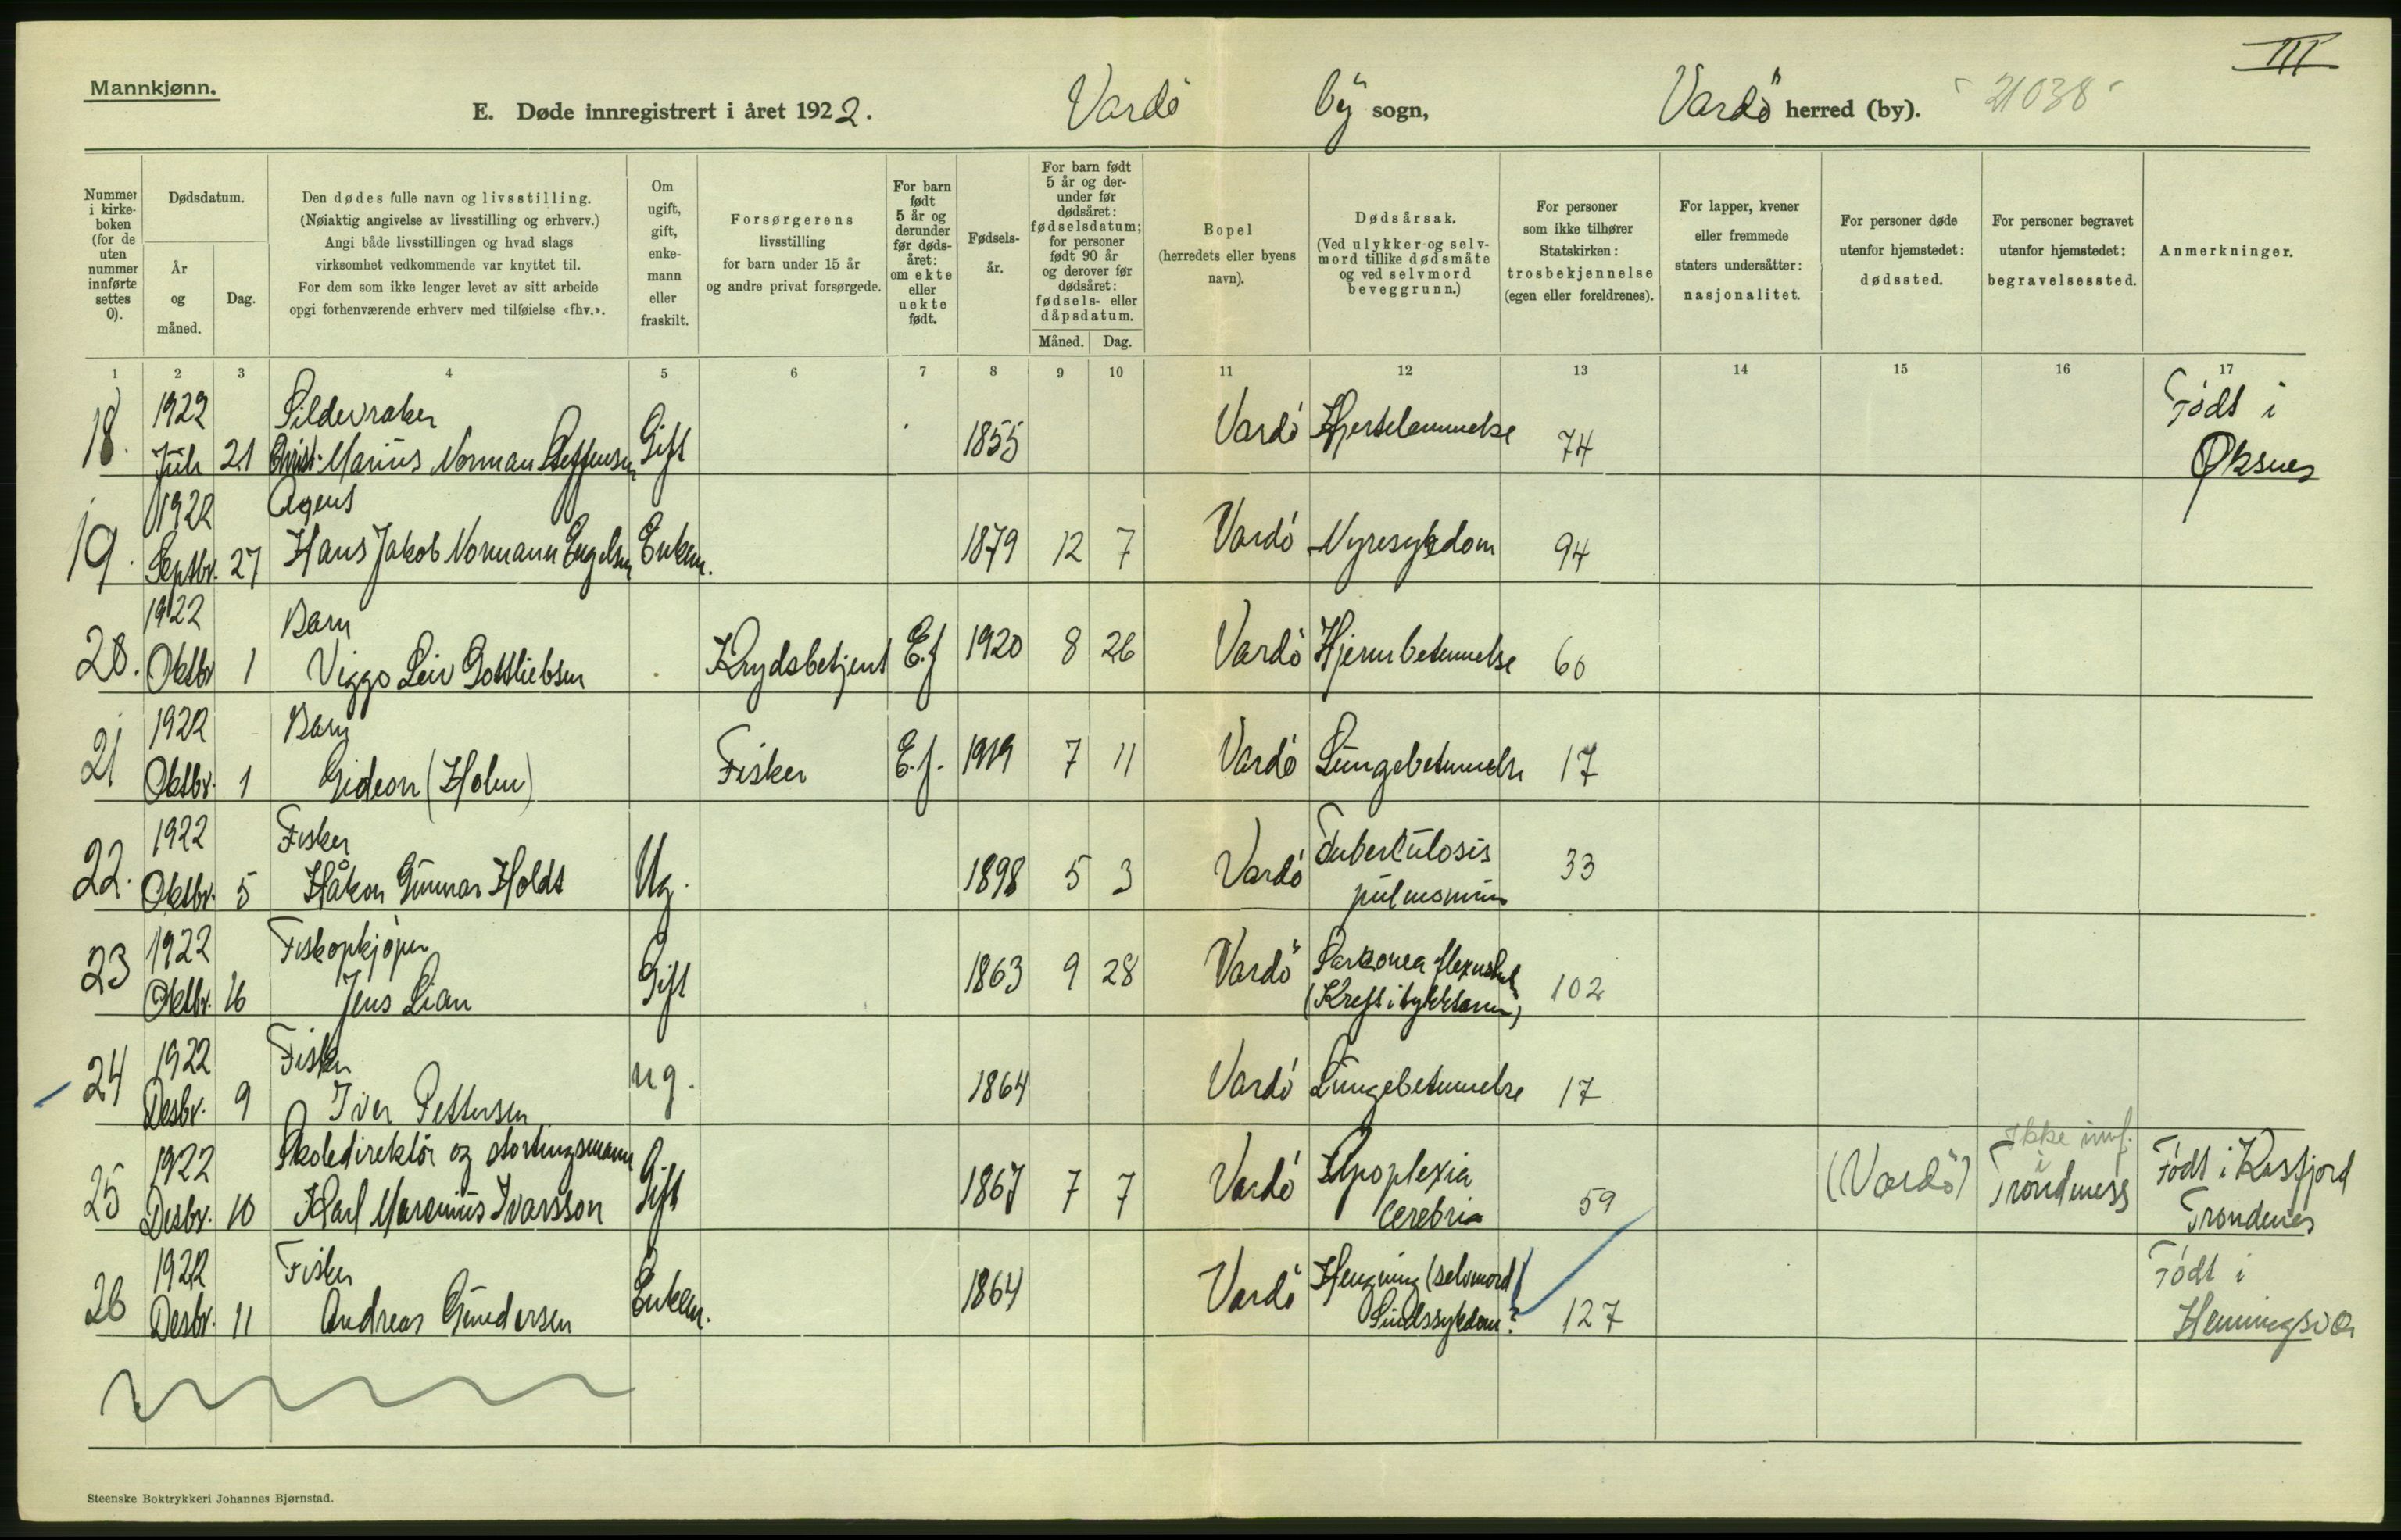 III
Mannkjønn.
E. Døde innregistrert i året 1922. Vardö by sogn, Vardö herred (by). 21038
Nummer i kirke-boken (for de uten nummer innførte settes 0).
Dødsdatum.
År og måned.
Dag.
Den dødes fulle navn og livsstilling.
(Nøiaktig angivelse av livsstilling og erhverv.)
Angi både livsstillingen og hvad slags
virksomhet vedkommende var knyttet til.
For dem som ikke lenger levet av sitt arbeide
opgi forhenværende erhverv med tilføielse «fhv.».
Om ugift, gift, enke-mann eller fraskilt.
Forsørgerens
livsstilling
for barn under 15 år
og andre privat forsørgede.
For barn født 5 år og derunder før døds-året: om ekte eller uekte født.
Fødsels-år.
For barn født 5 år og der-under før dødsåret: fødselsdatum; for personer født 90 år og derover før dødsåret: fødsels- eller dåpsdatum.
Måned.
Dag.
Bopel
(herredets eller byens
navn).
Dødsårsak.
(Ved ulykker og selv-
mord tillike dødsmåte
og ved selvmord
beveggrunn.)
For personer
som ikke tilhører
Statskirken:
trosbekjennelse
(egen eller foreldrenes).
For lapper, kvener
eller fremmede
staters undersåtter:
nasjonalitet.
For personer døde
utenfor hjemstedet:
dødssted.
For personer begravet
utenfor hjemstedet:
begravelsessted.
Anmerkninger.
1 2 3 4 5 6 7 8 9 10 11 12 13 14 15 16 17
1922 Sildevraker Født i
18. Juli 21 Christ. Marius Norman Steffensen Gift 1855 Vardö Hjertelammelse 74 Øksnes
1922 Agent
19. Septbr. 27 Hans Jakob Normann Engelsen Enkem. 1879 12 7 Vardö Nyresykdom 94
1922 Barn
20. Oktbr 1 Viggo Leiv Gottliebsen Krydsbetjent E.f 1920 8 26 Vardö Hjernebetennelse 60
1922 Barn
21 Oktbr. 1 Gideon (Holm) Fisker E.f. 1919 7 11 Vardö Lungebetennelse 17
1922 Fisker Tuberculosis
22. Oktbr. 5 Håkon Gunnar Holdt Ug. 1898 5 3 Vardö pulmonum 33
1922 Fiskopkjøper
23 Oktbr. 16 Jens Lian Gift 1863 9 28 Vardö (Kreft i tykktarm) 102
1922 Fisker
24 Desbr. 9 Iver Pettersen ug. 1864 Vardö Lungebetennelse 17
1922 Skoledirektör og stortingsmann Apoplexia Ikke innf. i Født i Kasfjord
25 Desbr. 10 Karl Marenius Ivarsson Gift 1867 7 7 Vardö cerebri 59 (Vardö) Trondenes Trondenes
1922 Fisker Hengning (selvmord) Født i
26 Desbr. 11 Andreas Gundersen Enkem. 1864 Vardö Sindssykdom? 127 Henningsvær
Steenske Boktrykkeri Johannes Bjørnstad.